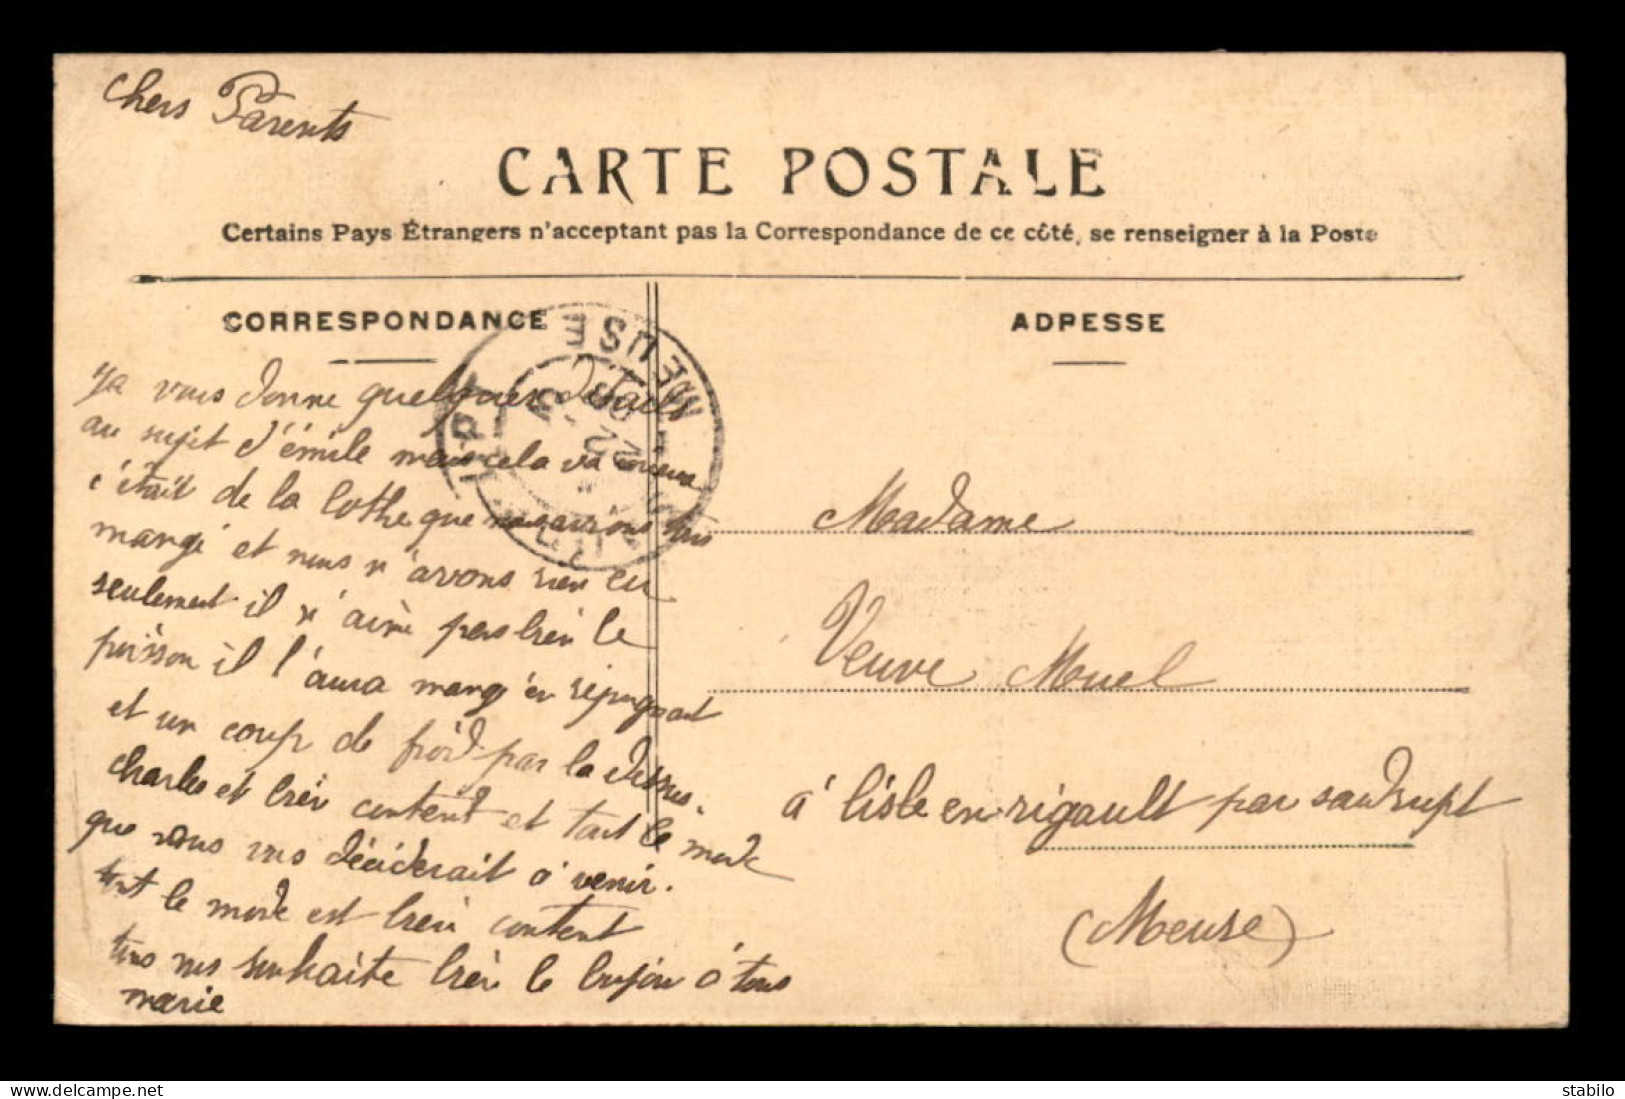 chers Parents
CARTE POSTALE
Certains Pays Étrangers n'acceptant pas la Correspondance de ce côté, se renseigner à la Poste
CORRESPONDANCE
ja vous donne quelques détails
au sujet d'émile mais cela va mieux
c'était de la lothe que nous avions tous
mangé et nous n'avons rien eu
seulement il n'aime pas bien le
poisson il l'aura mangé en répugnant
et un coup de froid par la dessus.
charles et bien content et tout le monde
que vous vous déciderait a venir.
tout le monde est bien content
tous vous souhaite bien le bonjour a tous
marie
MEUSE
22
ADRESSE
Madame
Veuve Muel
à lisle en rigault par saudrupt
(Meuse)
stabilo